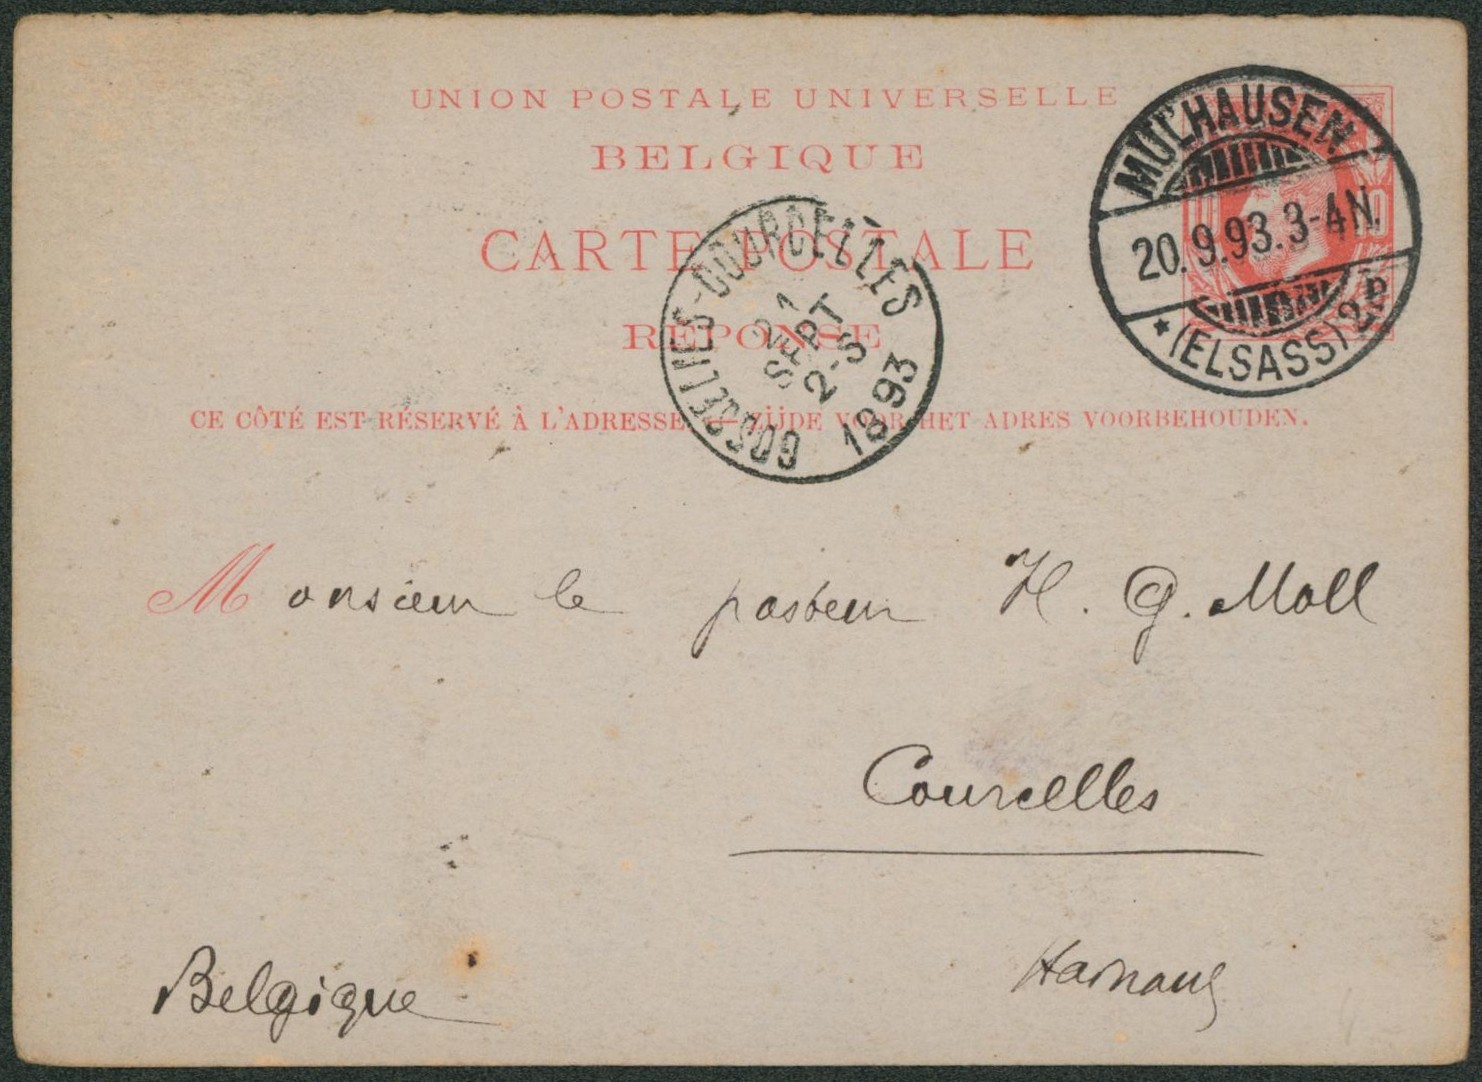 UNION POSTALE UNIVERSELLE
BELGIQUE
CARTE POSTALE
RÉPONSE
CE CÔTÉ EST RÉSERVÉ À L'ADRESSE. — ZIJDE VOOR HET ADRES VOORBEHOUDEN.
MÜLHAUSEN
20.9.93.3-4N.
* (ELSASS) 2 b
GOSSELIES-COURCELLES
21
SEPT
2-S
1893
Monsieur le pasteur H. G. Moll
Courcelles
Belgique